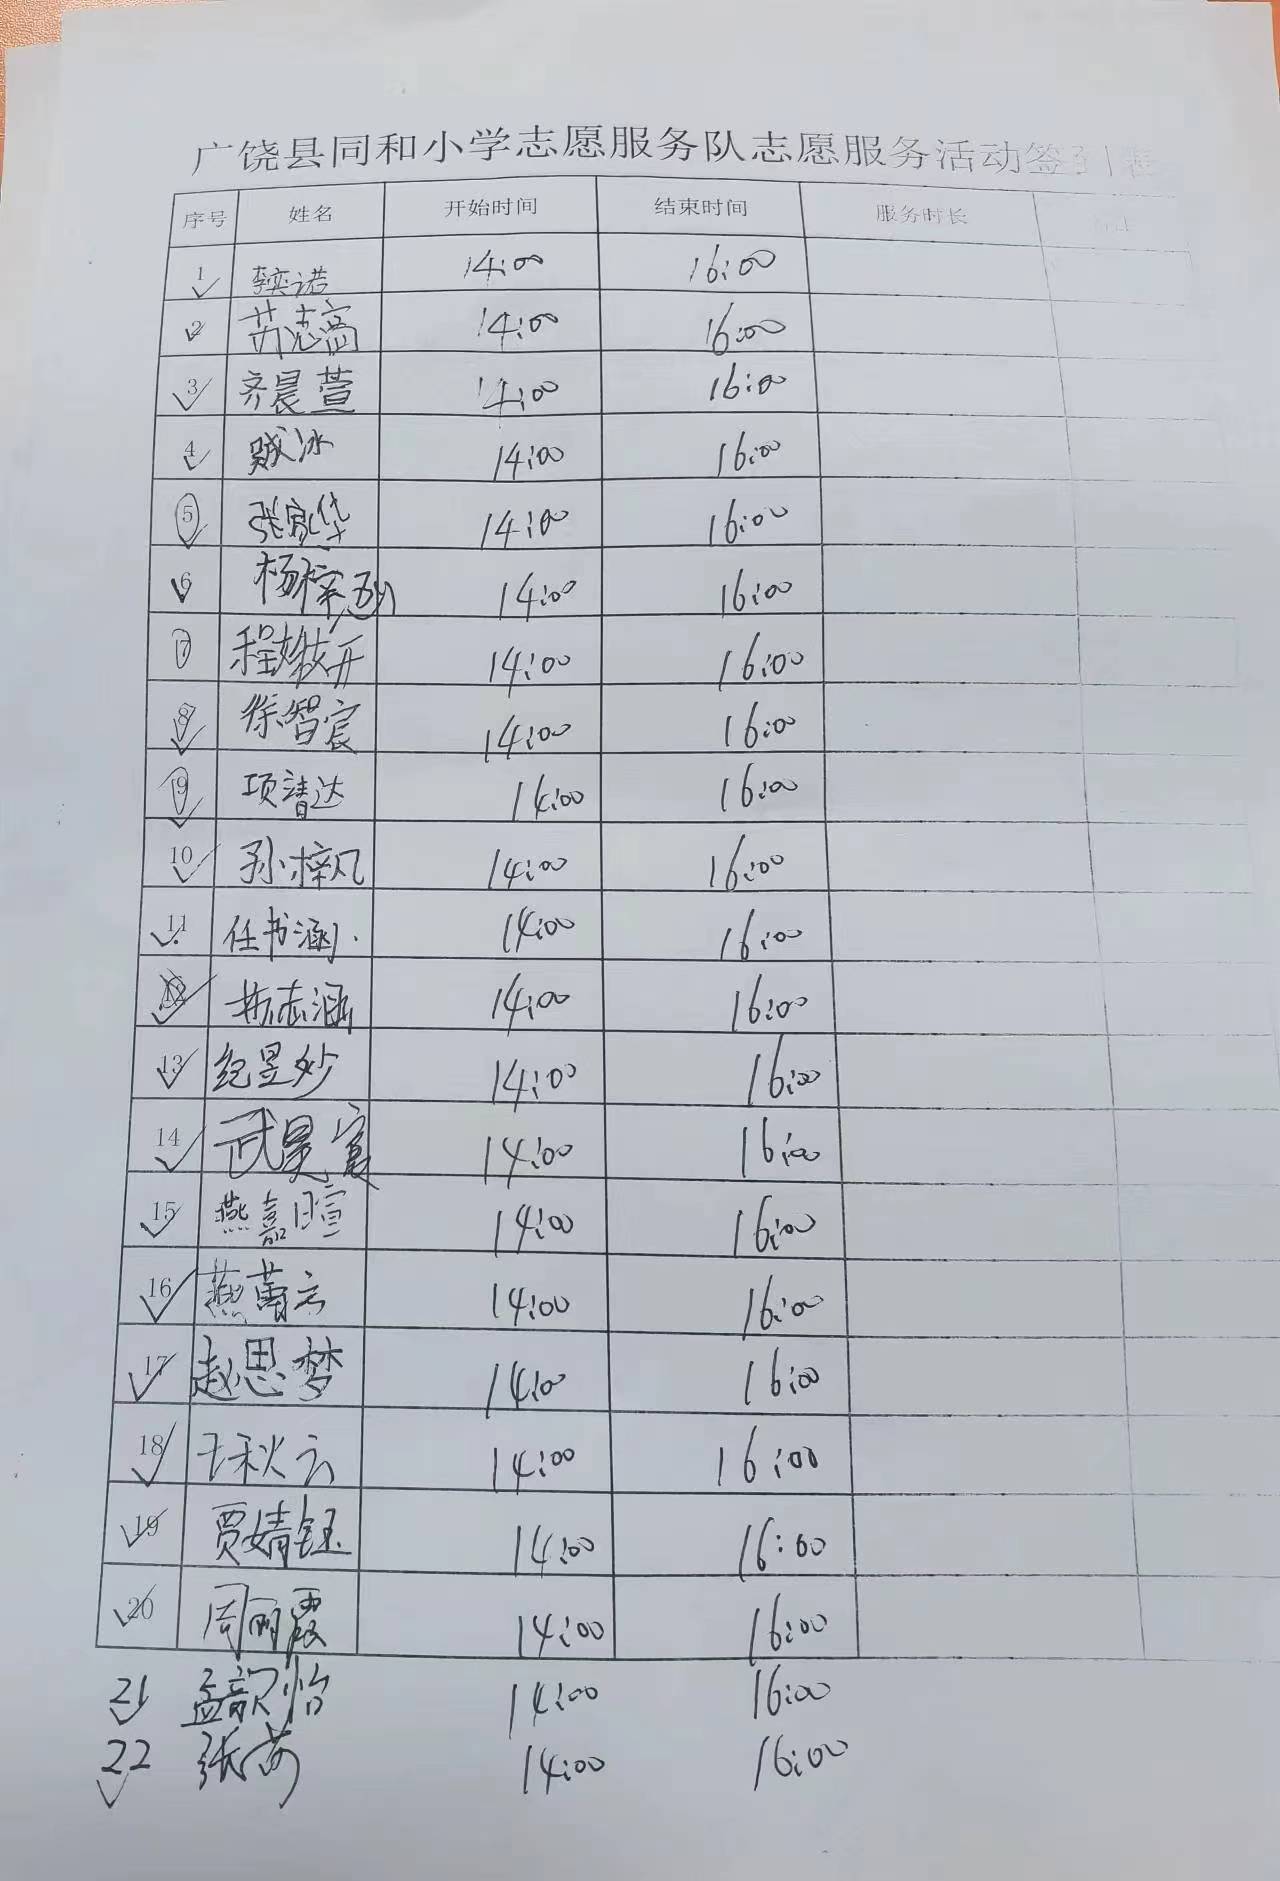 广饶县同和小学志愿服务队志愿服务活动签到表
序号 姓名 开始时间 结束时间 服务时长
1 李奕诺 14:00 16:00
2 志高 14:00 16:00
3 齐晨萱 14:00 16:00
4 冰 14:00 16:00
5 张家华 14:00 16:00
6 杨梓 14:00 16:00
7 程 开 14:00 16:00
8 徐智宸 14:00 16:00
9 项 达 14:00 16:00
10 孙梓凡 14:00 16:00
11 任书涵 14:00 16:00
12 志涵 14:00 16:00
13 纪昱妙 14:00 16:00
14 武昊宸 14:00 16:00
15 燕嘉暄 14:00 16:00
16 燕 云 14:00 16:00
17 赵思梦 14:00 16:00
18 秋云 14:00 16:00
19 贾婧钰 14:00 16:00
20 周丽霞 14:00 16:00
21 孟歆怡 14:00 16:00
22 张 14:00 16:00